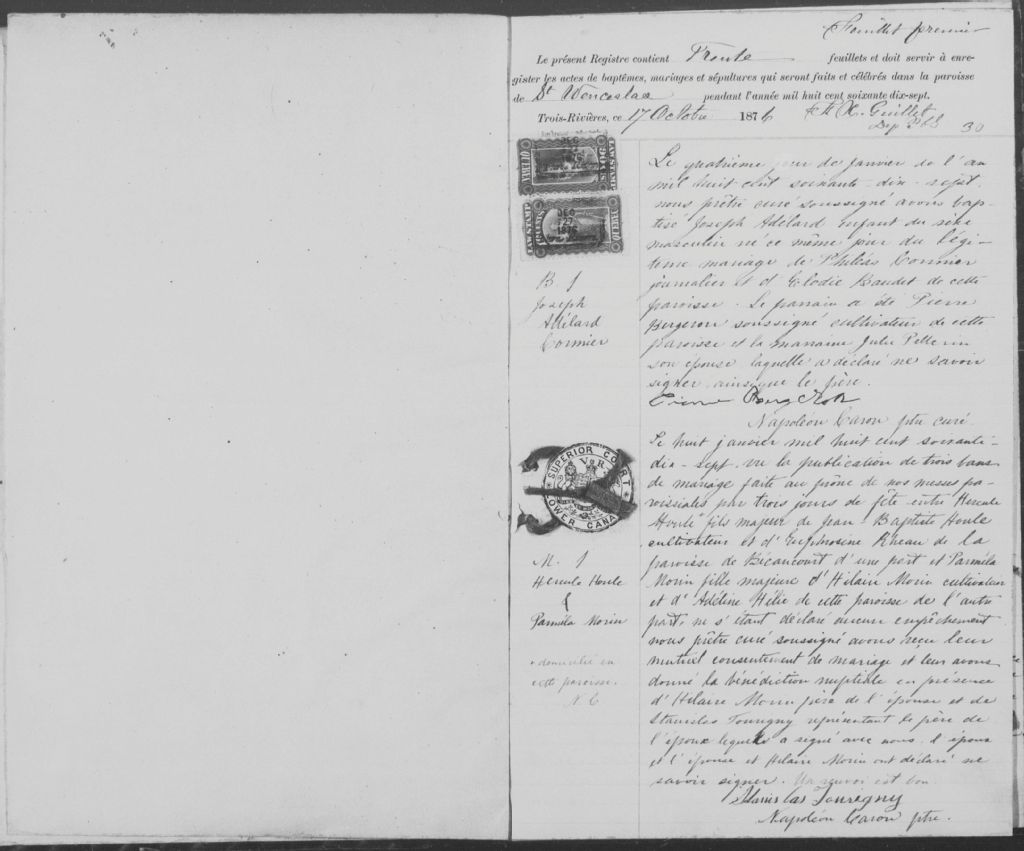 Feuillet premier
Le présent Registre contient Trente feuillets et doit servir à enre-
gister les actes de baptêmes, mariages et sépultures qui seront faits et célébrés dans la paroisse
de St Wenceslas pendant l'année mil huit cent soixante dix-sept.
Trois-Rivières, ce 17 Octobre 1876 Guillet
Dep P C S 30
LAW STAMP
QUEBEC
DEC
27
1876
B 1
Joseph
Adélard
Cormier
Le quatrième jour de janvier de l'an
mil huit cent soixante-dix-sept,
nous prêtre curé soussigné avons bap-
tisé Joseph Adélard enfant du sexe
masculin né ce même jour du légi-
time mariage de Philéas Cormier
journalier et d'Elodie Baudet de cette
paroisse. Le parrain a été Pierre
Bergeron soussigné cultivateur de cette
paroisse et la marraine Julie Pellerin
son épouse laquelle a déclaré ne savoir
signer ainsi que le père.
Pierre Bergeron
Napoléon Caron ptre curé
SUPERIOR COURT
V R
LOWER CANADA
M. 1
Hercule Houle
&
Parméla Morin
+ domicilié en
cette paroisse.
N. C
Le huit janvier mil huit cent soixante-
dix-sept, vu la publication de trois bans
de mariage faite au prône de nos messes pa-
roissiales par trois jours de fête entre Hercule
Houle + fils majeur de Jean-Baptiste Houle
cultivateur et d'Euphrosine Rheau de la
paroisse de Bécancourt d'une part et Parméla
Morin fille majeure d'Hilaire Morin cultivateur
et d'Adéline Hélie de cette paroisse de l'autre
part, ne s'étant déclaré aucun empêchement
nous prêtre curé soussigné avons reçu leur
mutuel consentement de mariage et leur avons
donné la bénédiction nuptiale en présence
d'Hilaire Morin père de l'épouse et de
Stanislas Tourigny représentant le père de
l'époux lequel a signé avec nous. l'époux
et l'épouse et Hilaire Morin ont déclaré ne
savoir signer. Un renvoi est bon.
Stanislas Tourigny
Napoléon Caron ptre.